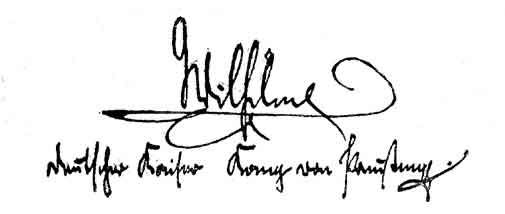 Wilhelm
Deutscher Kaiser König von Preußen.